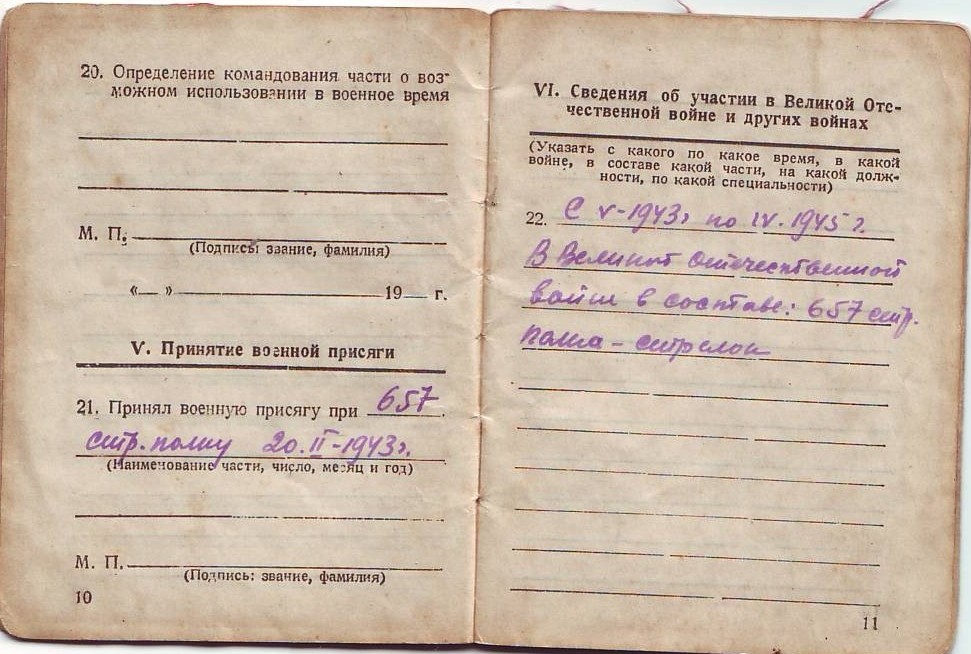 20. Определение командования части о воз-
можном использовании в военное время
М. П.
(Подпись: звание, фамилия)
«— »  19— г.
V. Принятие военной присяги
21. Принял военную присягу при 657
стр. полку 20. II-1943г.
(Наименование части, число, месяц и год)
М. П.
(Подпись: звание, фамилия)
10
VI. Сведения об участии в Великой Оте-
чественной войне и других войнах
(Указать с какого по какое время, в какой
войне, в составе какой части, на какой долж-
ности, по какой специальности)
22. С V-1943г по IV. 1945 г.
В Великой отечественной
войне в составе: 657 стр.
полка - стрелок
11